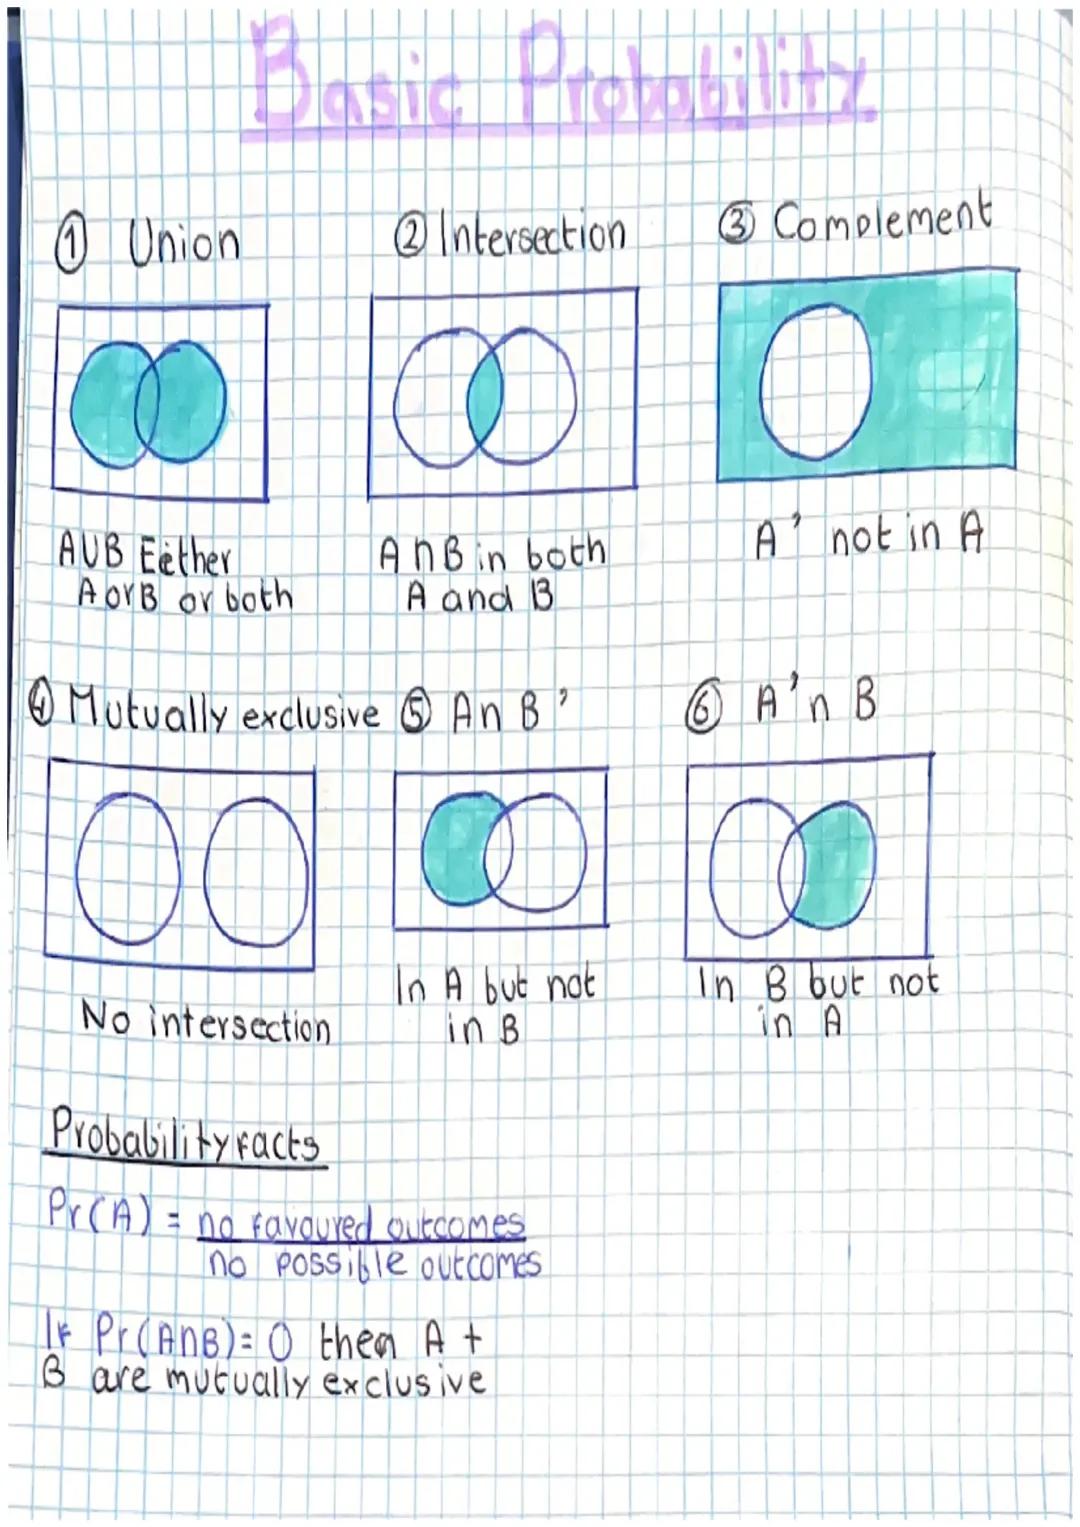 Basic Probability
① Union
② Intersection
③ Complement
AUB Either
A or B or both
A n B in both
A and B
A' not in A
④ Mutually exclusive
⑤ A n B'
⑥ A' n B
No intersection
In A but not
in B
In B but not
in A
Probability facts
Pr(A) = no favoured outcomes
no possible outcomes
If Pr(AnB)=0 then A +
B are mutually exclusive